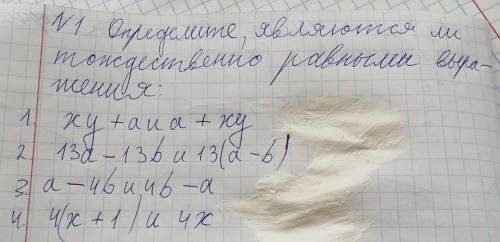 №1 Определите, являются ли
тождественно равными выра-
жения:
1. xy + a и a + xy
2. 13a - 13b и 13(a - b)
3. a - 4b и 4b - a
4. 4(x + 1) и 4x